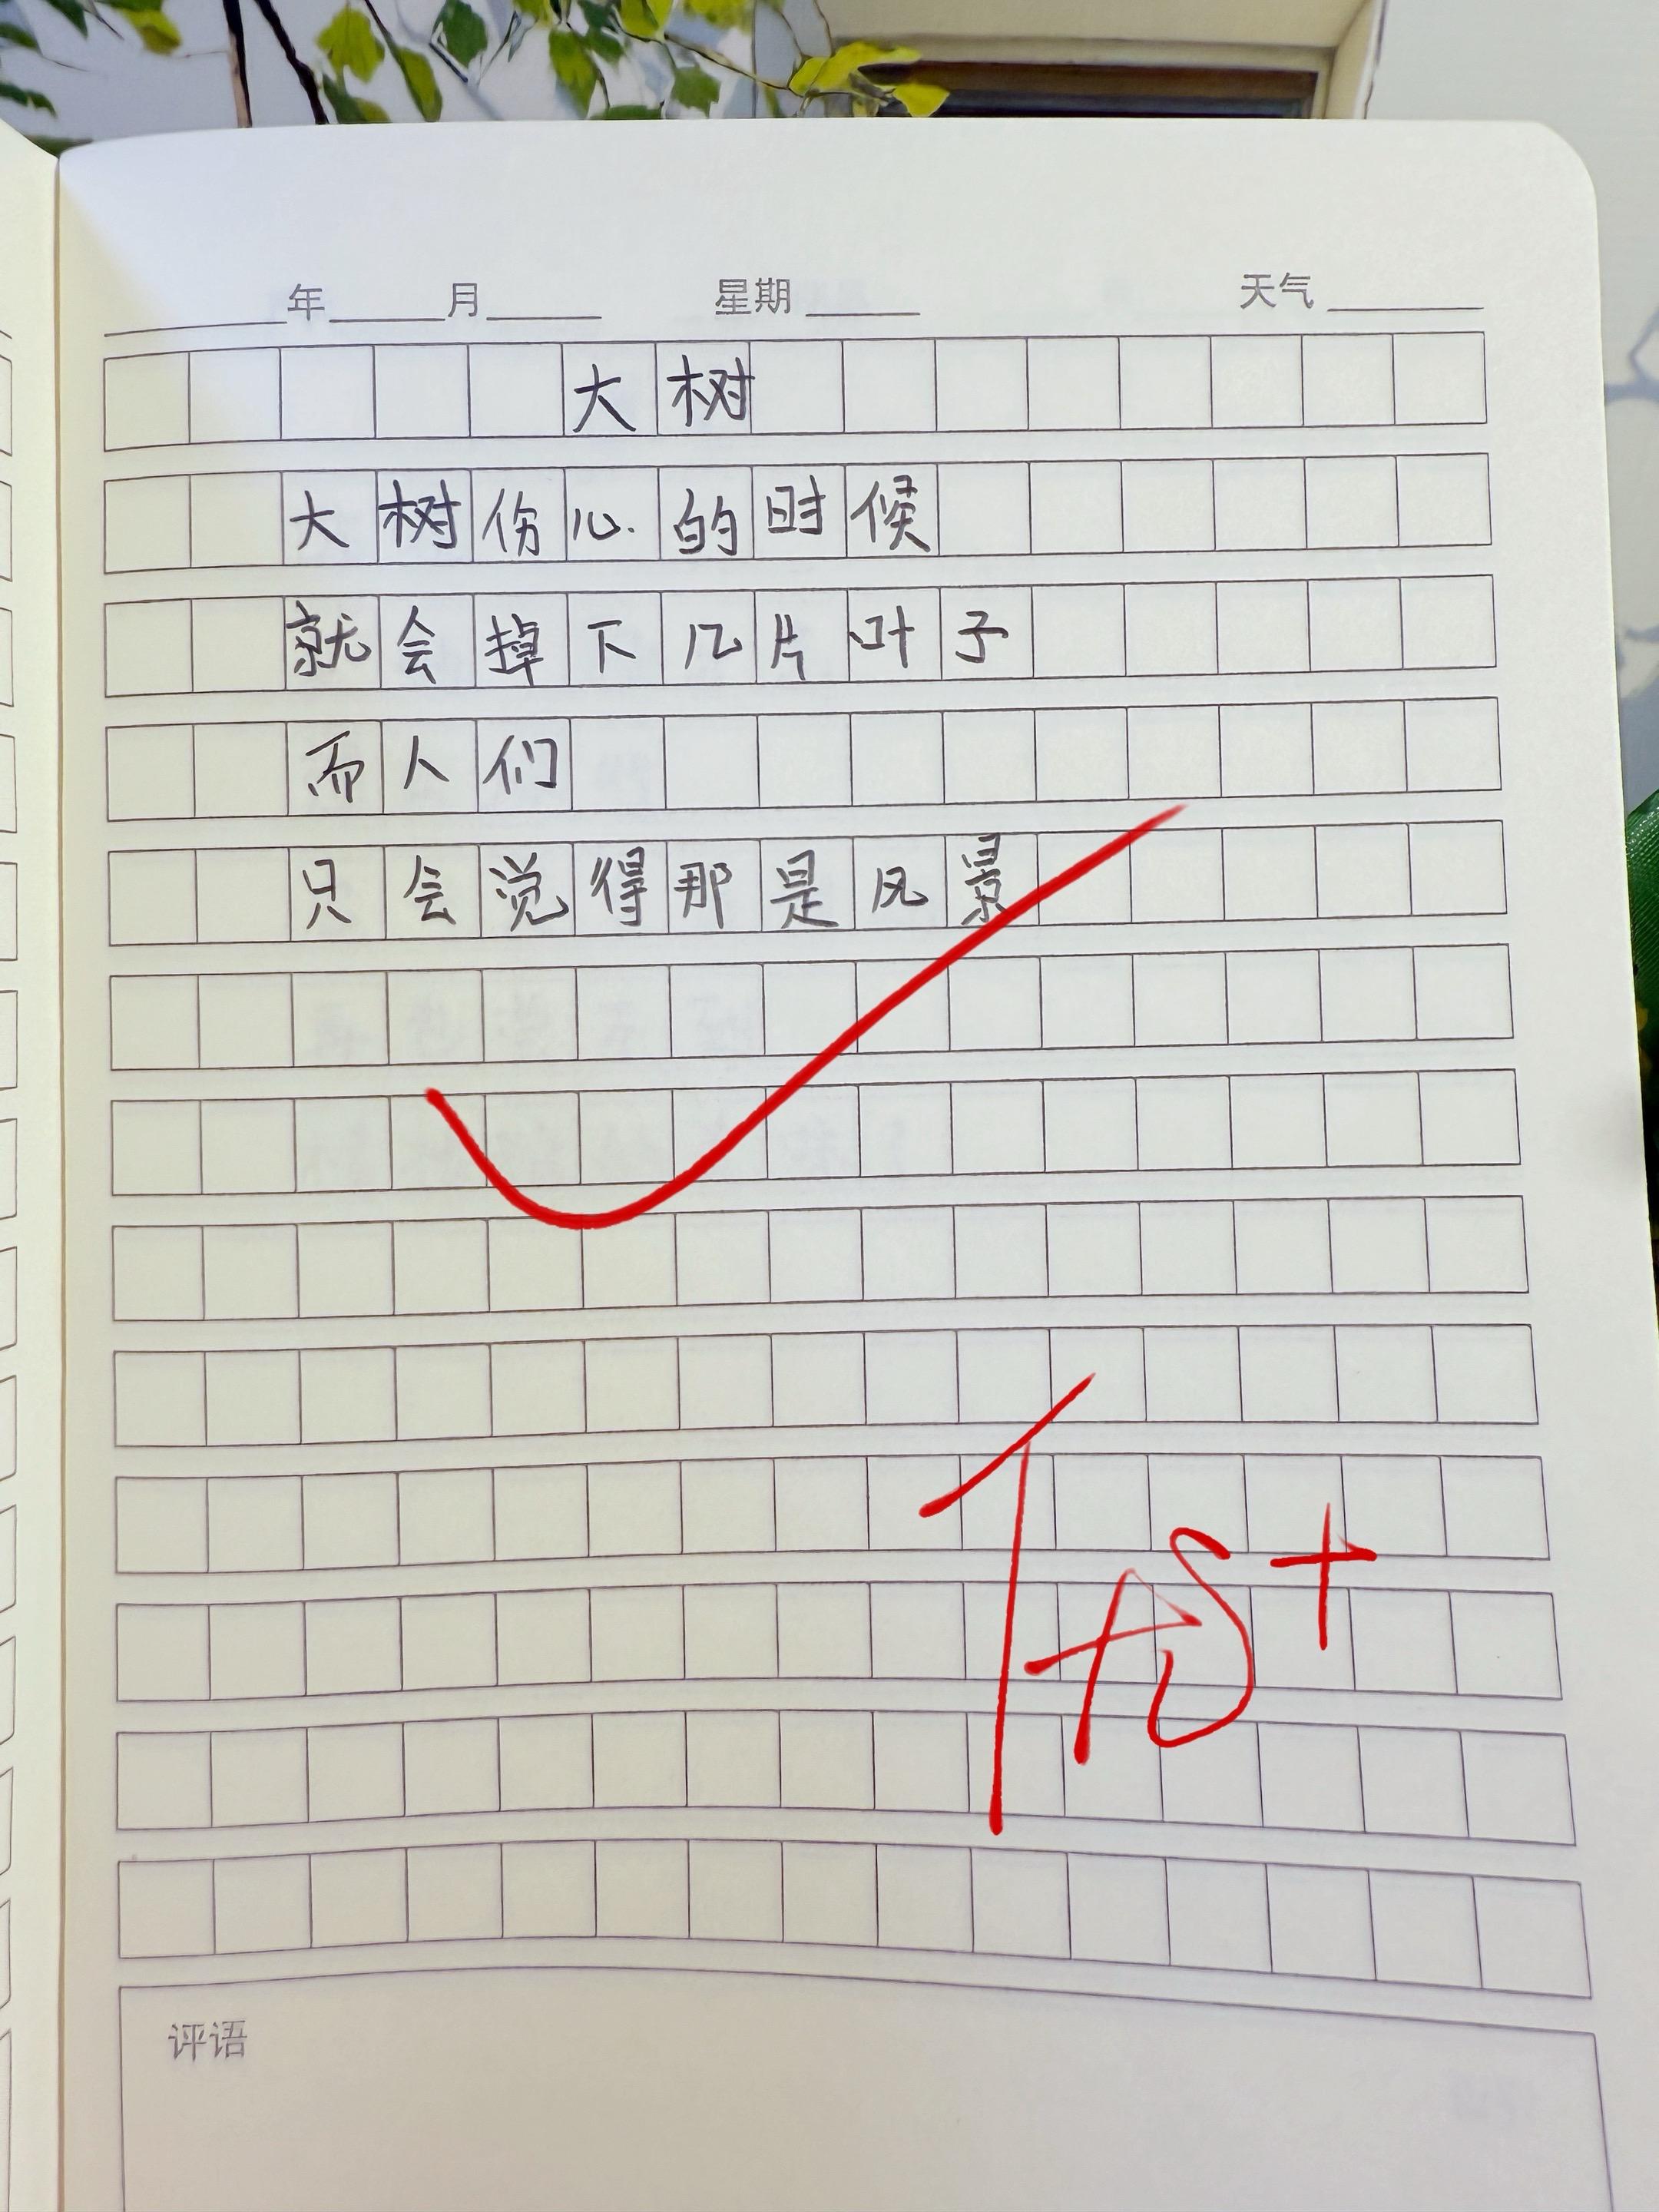 年 月 星期 天气
大树
大树伤心的时候
就会掉下几片叶子
而人们
只会觉得那是风景
评语